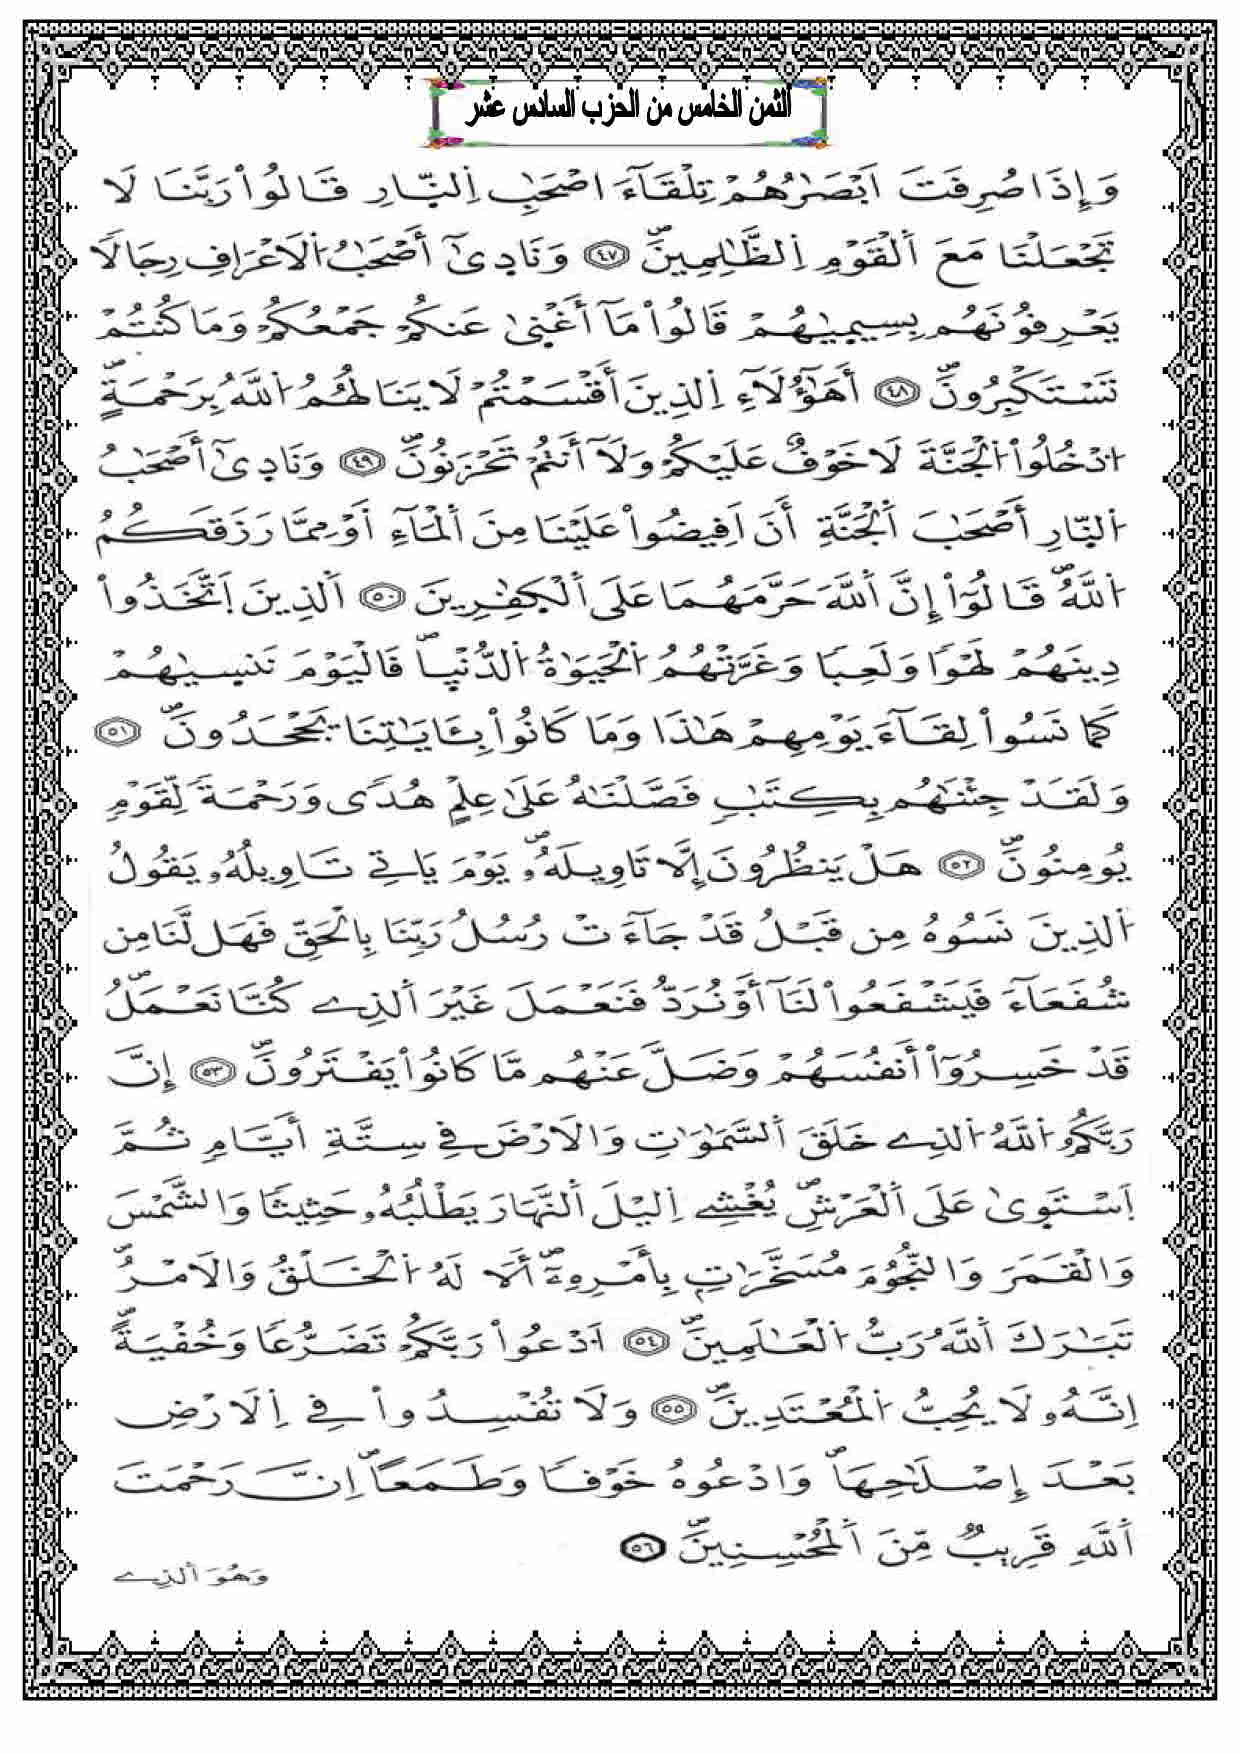 الثمن الخامس من الحزب السادس عشر
وَإِذَا صُرِفَتَ اَبْصَٰرُهُمْ تِلْقَآءَ اَصْحَٰبِ اِ۬لنّ۪ارِ قَالُواْ رَبَّنَا لَا
تَجْعَلْنَا مَعَ اَ۬لْقَوْمِ اِ۬لظَّٰلِمِينَۖ ٤٧ وَنَاد۪ىٰٓ أَصْحَٰبُ اُ۬لَاعْرَافِ رِجَالاٗ
يَعْرِفُونَهُم بِسِيم۪يٰهُمْ قَالُواْ مَآ أَغْن۪ىٰ عَنكُمْ جَمْعُكُمْ وَمَا كُنتُمْ
تَسْتَكْبِرُونَۖ ٤٨ أَهَٰٓؤُلَآءِ اِ۬لذِينَ أَقْسَمْتُمْ لَا يَنَالُهُمُ اُ۬للَّهُ بِرَحْمَةٍۖ
اُ۟دْخُلُواْ اُ۬لْجَنَّةَ لَا خَوْفٌ عَلَيْكُمْ وَلَآ أَنتُمْ تَحْزَنُونَۖ ٤٩ وَنَاد۪ىٰٓ أَصْحَٰبُ
اُ۬لنّ۪ارِ أَصْحَٰبَ اَ۬لْجَنَّةِ أَنَ اَفِيضُواْ عَلَيْنَا مِنَ اَ۬لْمَآءِ اَوْ مِمَّا رَزَقَكُمُ
اُ۬للَّهُۖ قَالُوٓاْ إِنَّ اَ۬للَّهَ حَرَّمَهُمَا عَلَى اَ۬لْكٰ۪فِرِينَ ٥٠ اَ۬لذِينَ اَ۪تَّخَذُواْ
دِينَهُمْ لَهْواٗ وَلَعِباٗ وَغَرَّتْهُمُ اُ۬لْحَيَوٰةُ اُ۬لدُّنْي۪اۖ فَالْيَوْمَ نَنس۪يٰهُمْ
كَمَا نَسُواْ لِقَآءَ يَوْمِهِمْ هَٰذَا وَمَا كَانُواْ بِـَٔايَٰتِنَا يَجْحَدُونَۖ ٥١
وَلَقَدْ جِئْنَٰهُم بِكِتَٰبٖ فَصَّلْنَٰهُ عَلَىٰ عِلْمٍ هُدىٗ وَرَحْمَةٗ لِّقَوْمٖ
يُومِنُونَۖ ٥٢ هَلْ يَنظُرُونَ إِلَّا تَاوِيلَهُۥۖ يَوْمَ يَاتِے تَاوِيلُهُۥ يَقُولُ
اُ۬لذِينَ نَسُوهُ مِن قَبْلُ قَدْ جَآءَتْ رُسُلُ رَبِّنَا بِالْحَقِّ فَهَل لَّنَا مِن
شُفَعَآءَ فَيَشْفَعُواْ لَنَآ أَوْ نُرَدُّ فَنَعْمَلَ غَيْرَ اَ۬لذِے كُنَّا نَعْمَلُۖ
قَدْ خَسِرُوٓاْ أَنفُسَهُمْ وَضَلَّ عَنْهُم مَّا كَانُواْ يَفْتَرُونَۖ ٥٣ إِنَّ
رَبَّكُمُ اُ۬للَّهُ اُ۬لذِے خَلَقَ اَ۬لسَّمَٰوَٰتِ وَالَارْضَ فِے سِتَّةِ أَيَّامٖ ثُمَّ
اَ۪سْتَو۪ىٰ عَلَى اَ۬لْعَرْشِۖ يُغْشِے اِ۬ليْلَ اَ۬لنَّهَارَ يَطْلُبُهُۥ حَثِيثاٗ وَالشَّمْسَ
وَالْقَمَرَ وَالنُّجُومَ مُسَخَّرَٰتِۢ بِأَمْرِهِۦٓۖ أَلَا لَهُ اُ۬لْخَلْقُ وَالَامْرُۖ
تَبَٰرَكَ اَ۬للَّهُ رَبُّ اُ۬لْعَٰلَمِينَۖ ٥٤ اَ۟دْعُواْ رَبَّكُمْ تَضَرُّعاٗ وَخُفْيَةًۖ
اِنَّهُۥ لَا يُحِبُّ اُ۬لْمُعْتَدِينَۖ ٥٥ وَلَا تُفْسِدُواْ فِے اِ۬لَارْضِ
بَعْدَ إِصْلَٰحِهَاۖ وَادْعُوهُ خَوْفاٗ وَطَمَعاًۖ اِنَّ رَحْمَتَ
اَ۬للَّهِ قَرِيبٌ مِّنَ اَ۬لْمُحْسِنِينَۖ ٥٦
وَهُوَ اَ۬لذِے